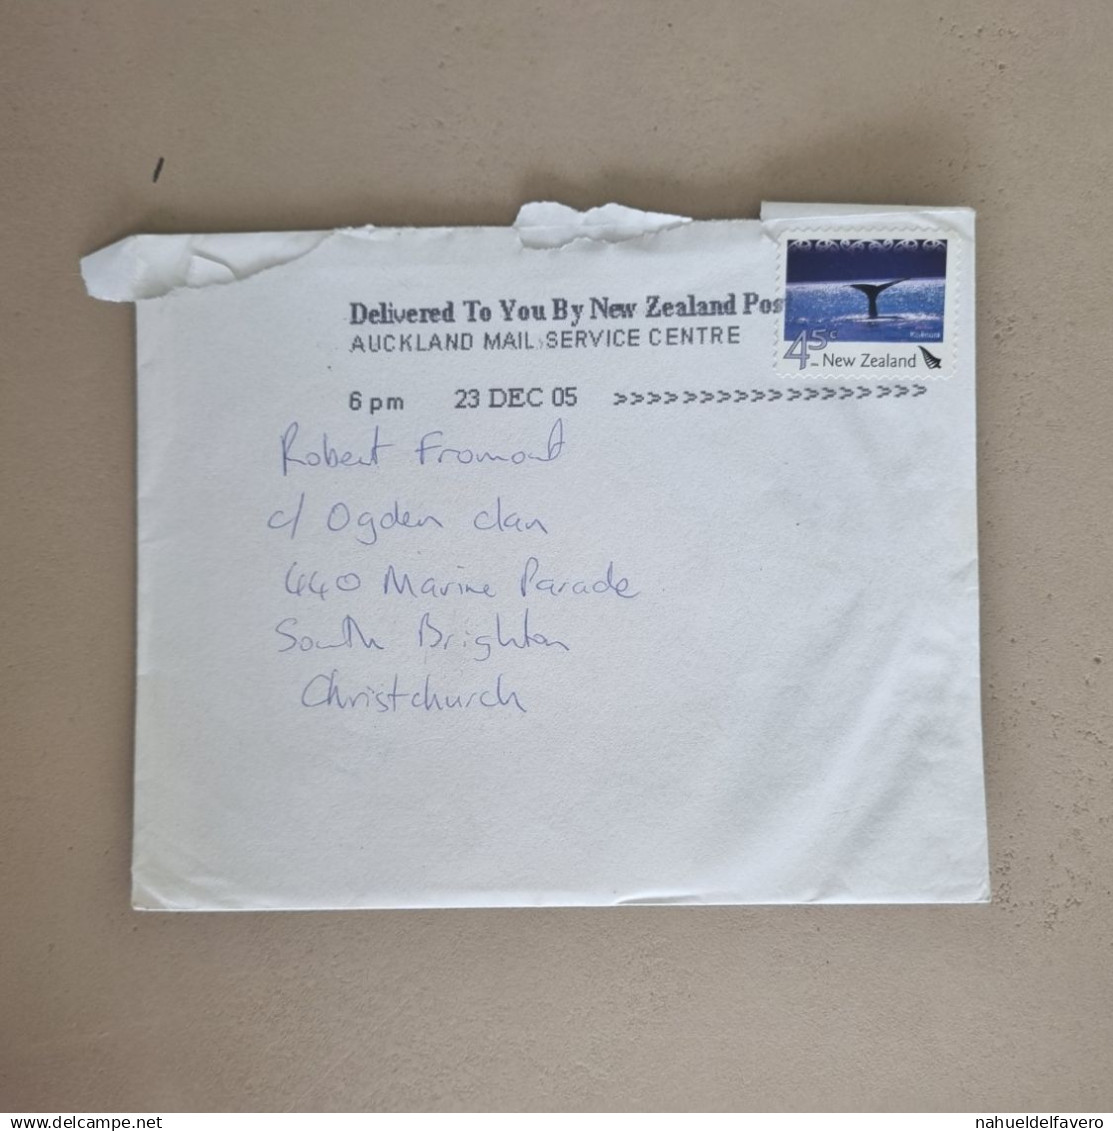 Delivered To You By New Zealand Pos
AUCKLAND MAIL SERVICE CENTRE
6 pm 23 DEC 05 >>>>>>>>>>>>>>>>>>
45c
New Zealand
Robert Fromont
c/ Ogden clan
440 Marine Parade
South Brighton
Christchurch
nahueldelfavero